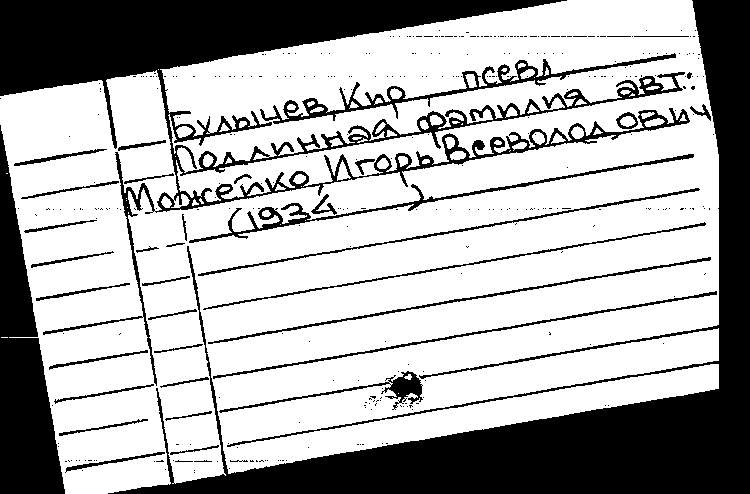 Булычев, Кир, псевд.
Подлинная фамилия авт:
Можейко, Игорь Всеволодович
(1934     ).